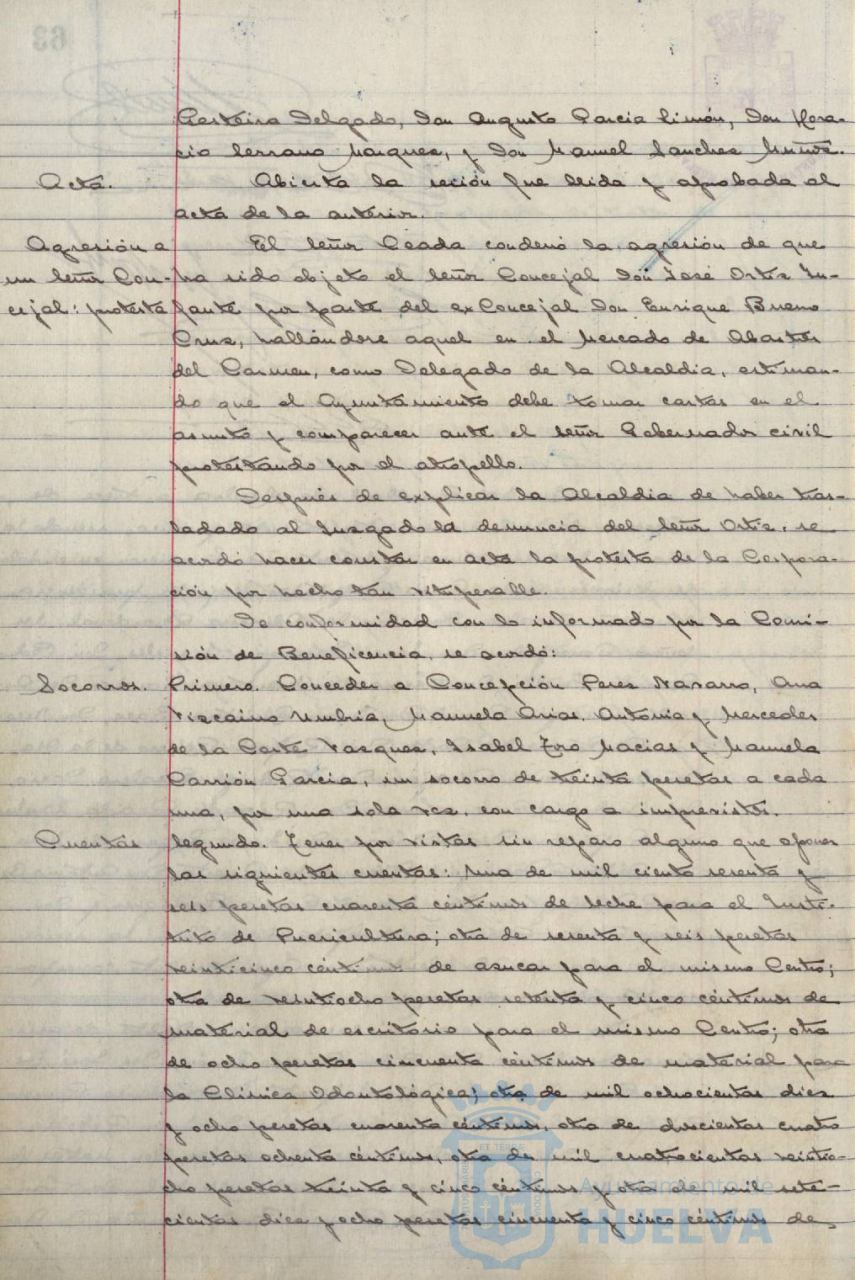 63
Delgado, Don Augusto Garcia Limón, Don Hora-
cio Serrano Marquez, y Don Manuel Sanchez Muñoz.
Acta. Abierta la seción fue leida y aprobada al
acta de la anterior.
Agresión a El señor Ceada condenó la agresión de que
un señor Con- ha sido objeto el señor Concejal Don José Ortiz In-
cejal: protesta fante por parte del exConcejal Don Enrique Bueno
Cruz, hallándose aquel en el Mercado de Abastos
del Carmen, como Delegado de la Alcaldia, estiman-
do que el Ayuntamiento debe tomar cartas en el
asunto y comparecer ante el señor Gobernador civil
protestando por el atropello.
Después de explicar la Alcaldia de haber tras-
ladado al Juzgado la denuncia del señor Ortiz, se
acordó hacer constar en acta la protesta de la Corpora-
ción por hecho tan vituperable.
De conformidad con lo informado por la Comi-
sión de Beneficencia, se acordó:
Socorros. Primero. Conceder a Concepción Perez Navarro, Ana
Vizcaino Umbria, Manuela Arias, Antonia y Mercedes
de la Corte Vazquez, Isabel Toro Macias y Manuela
Carrión Garcia, un socorro de treinta pesetas a cada
una, por una sola vez, con cargo a imprevistos.
Cuentas Segundo. Tener por vistas sin reparo alguno que oponer
las siguientes cuentas: Una de mil ciento sesenta y
seis pesetas cuarenta céntimos de leche para el Insti-
tuto de Puericultura; otra de sesenta y seis pesetas
veinticinco céntimos de azucar para el mismo Centro;
otra de veintiocho pesetas setenta y cinco céntimos de
material de escritorio para el mismo Centro; otra
de ocho pesetas cincuenta céntimos de material para
la Clinica Odontológica; otra de mil ochocientas diez
y ocho pesetas cuarenta céntimos, otra de doscientas cuatro
pesetas ochenta céntimos, otra de mil cuatrocientas veintio-
cho pesetas treinta y cinco céntimos y otra de mil sete-
cientas diez y ocho pesetas cincuenta y cinco céntimos de
Ayuntamiento de
HUELVA